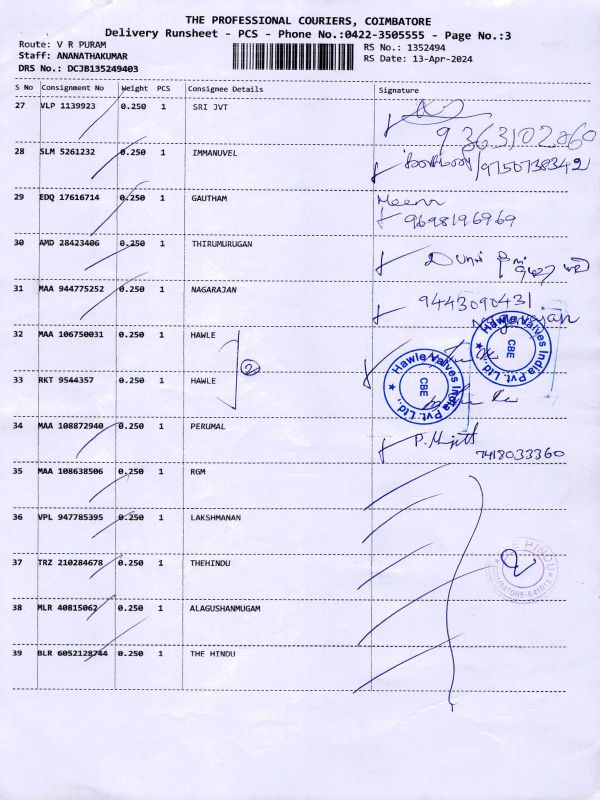 THE PROFESSIONAL COURIERS, COIMBATORE
Delivery Runsheet - PCS - Phone No.:0422-3505555 - Page No.:3
Route: V R PURAM
RS No.: 1352494
Staff: ANANATHAKUMAR
RS Date: 13-Apr-2024
DRS No.: DCJB135249403
S No Consignment No Weight PCS Consignee Details Signature
27 VLP 1139923 0.250 1 SRI JVT
9363102860
28 SLM 5261232 0.250 1 IMMANUVEL
/9750738342
29 EDQ 17616714 0.250 1 GAUTHAM Meena
9698196969
30 AMD 28423406 0.250 1 THIRUMURUGAN
31 MAA 944775252 0.250 1 NAGARAJAN 9443090431
Nagarajan
32 MAA 106750031 0.250 1 HAWLE
Hawle Valves India Pvt. Ltd., ★ CBE
2
33 RKT 9544357 0.250 1 HAWLE
Hawle Valves India Pvt. Ltd., ★ CBE
34 MAA 108872940 0.250 1 PERUMAL
7418033360
35 MAA 108638506 0.250 1 RGM
36 VPL 947785395 0.250 1 LAKSHMANAN
37 TRZ 210284678 0.250 1 THEHINDU
THE HINDU COIMBATORE-641018
2
38 MLR 40815062 0.250 1 ALAGUSHANMUGAM
39 BLR 6052128744 0.250 1 THE HINDU